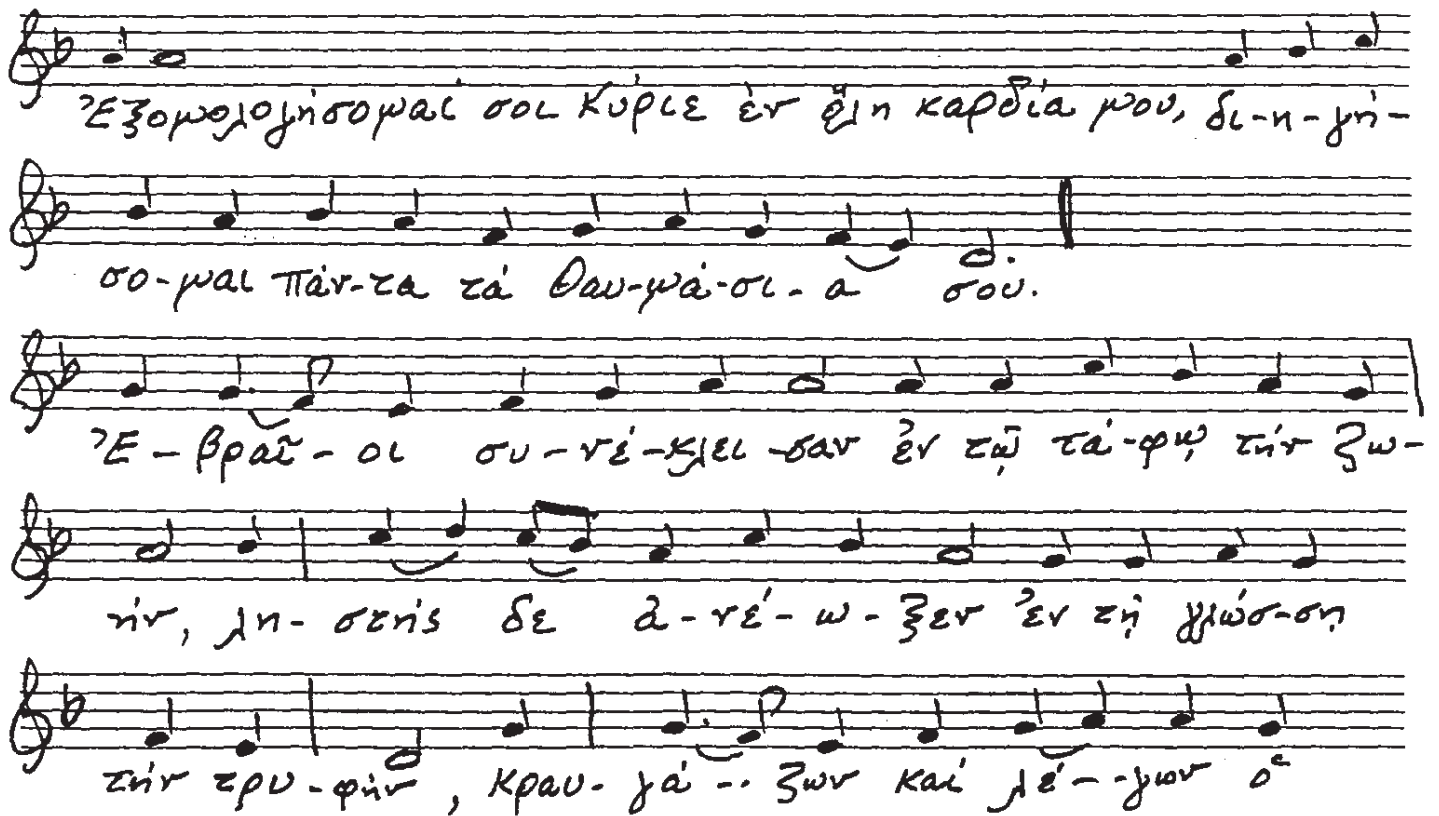 Ἐξομολογήσομαί σοι Κύριε ἐν ὅλη καρδία μου, δι-η-γή-
σο-μαι πάν-τα τά θαυ-μά-σι-α σου.
Ἑ-βραῖ-οι συ-νέ-κλει-σαν ἐν τῷ τά-φῳ τήν ζω-
ήν, λη-στής δε ἀ-νέ-ω-ξεν ἐν τῇ γλώσ-σῃ
τήν τρυ-φήν, κραυ-γά--ζων καί λέ--γων ὁ